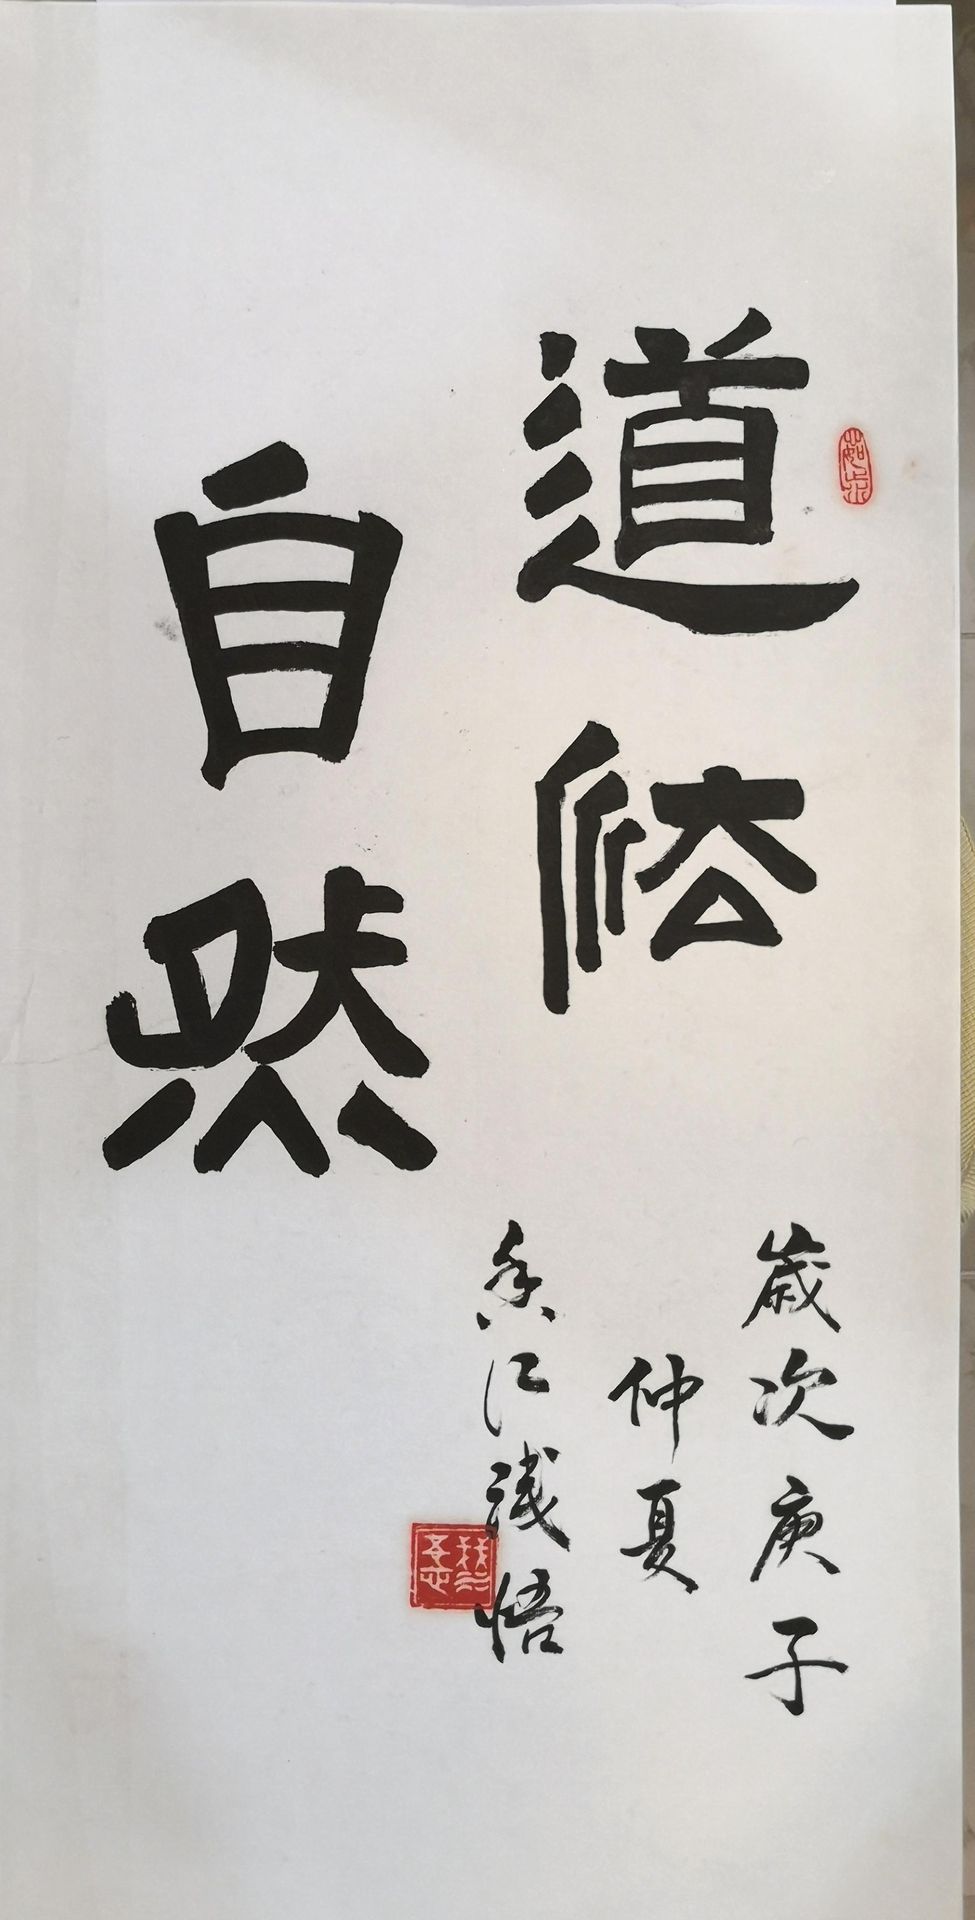 道法
自然
歲次庚子
仲夏
香江淺悟